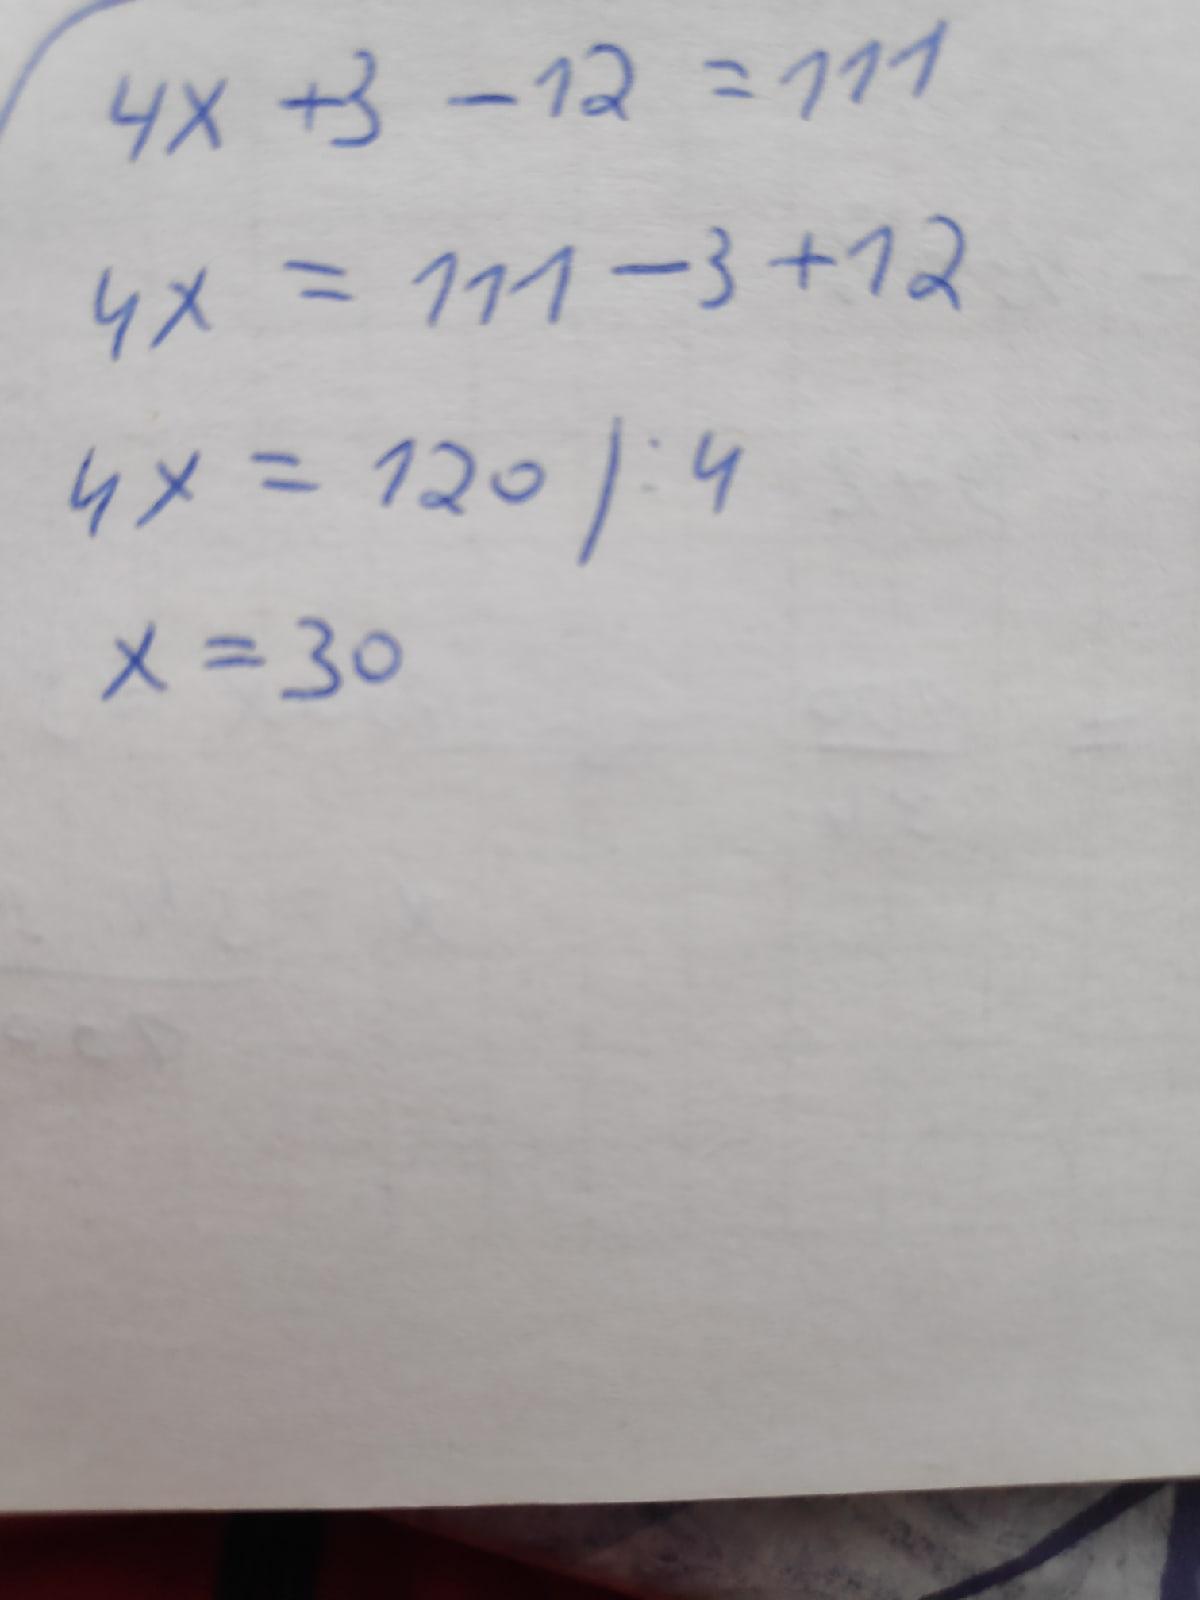 4x +3 - 12 = 111
4x = 111 - 3 + 12
4x = 120 /: 4
x = 30